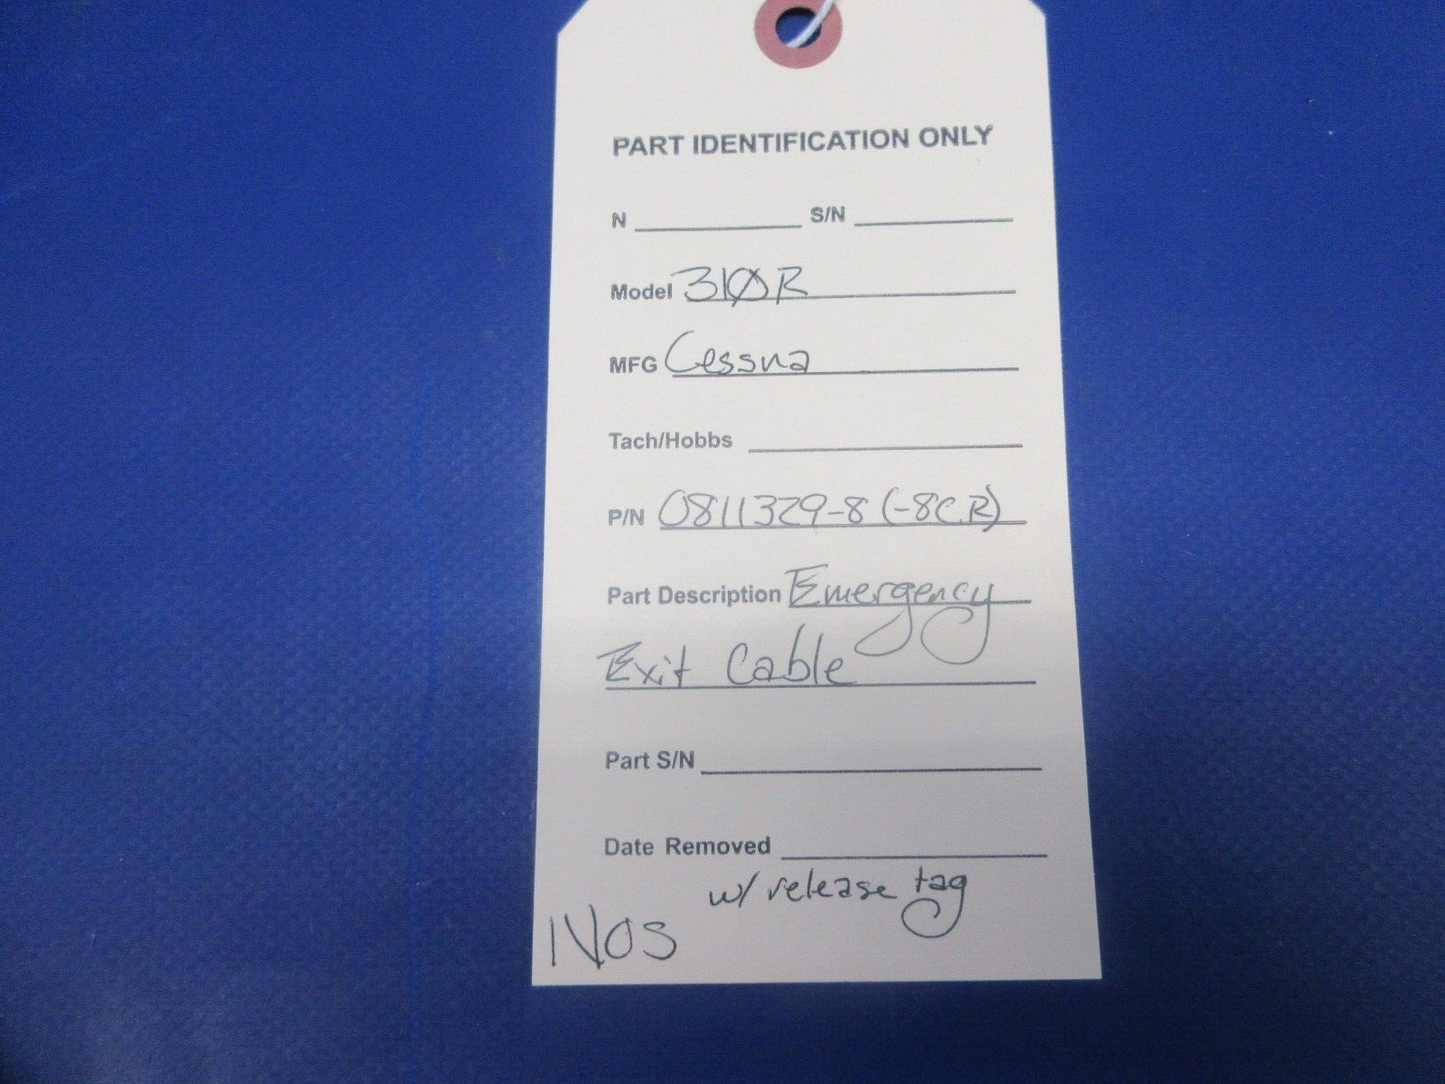 PART IDENTIFICATION ONLY
N S/N
Model 310R
MFG Cessna
Tach/Hobbs
P/N 0811329-8 (-8C.R)
Part Description Emergency
Exit Cable
Part S/N
Date Removed
w/ release tag
NOS